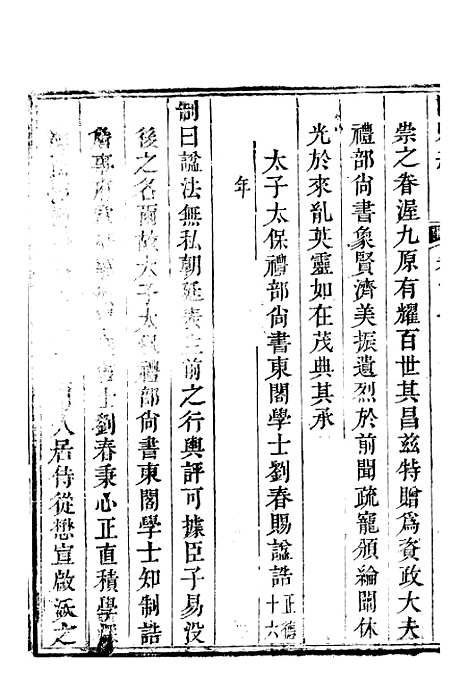 祟之眷渥九原有耀百世其昌兹特贈爲資政大夫
禮部尚書象賢濟美振遺烈於前聞疏寵頒綸闡休
光於來胤英靈如在茂典其承
太子太保禮部尚書東閣學士劉春賜諡誥正德十六
年
制曰諡法無私朝廷 前之行輿評可據臣子易没
後之名爾故太子太保禮部尚書東閣學士知制誥
士劉春秉心正直積學
入居侍從懋宣啟沃之